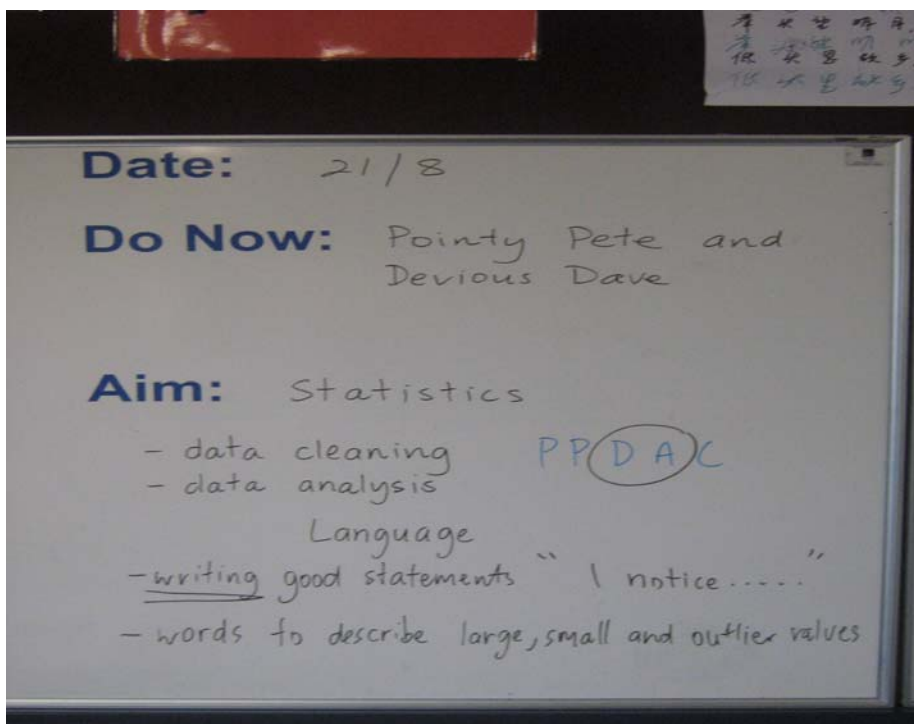 低头思故乡
Date: 21/8
Do Now: Pointy Pete and
Devious Dave
Aim: Statistics
- data cleaning PPDAC
- data analysis
Language
- writing good statements " I notice ..... "
- words to describe large, small and outlier values